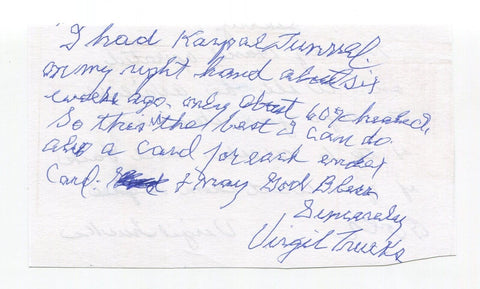 I had Karpal Tunnsal.
on my right hand about six
weeks ago. only about 60% healed.
So this is the best I can do
also a card for each index
Card. & may God Bless
Sincerely
Virgil Trucks